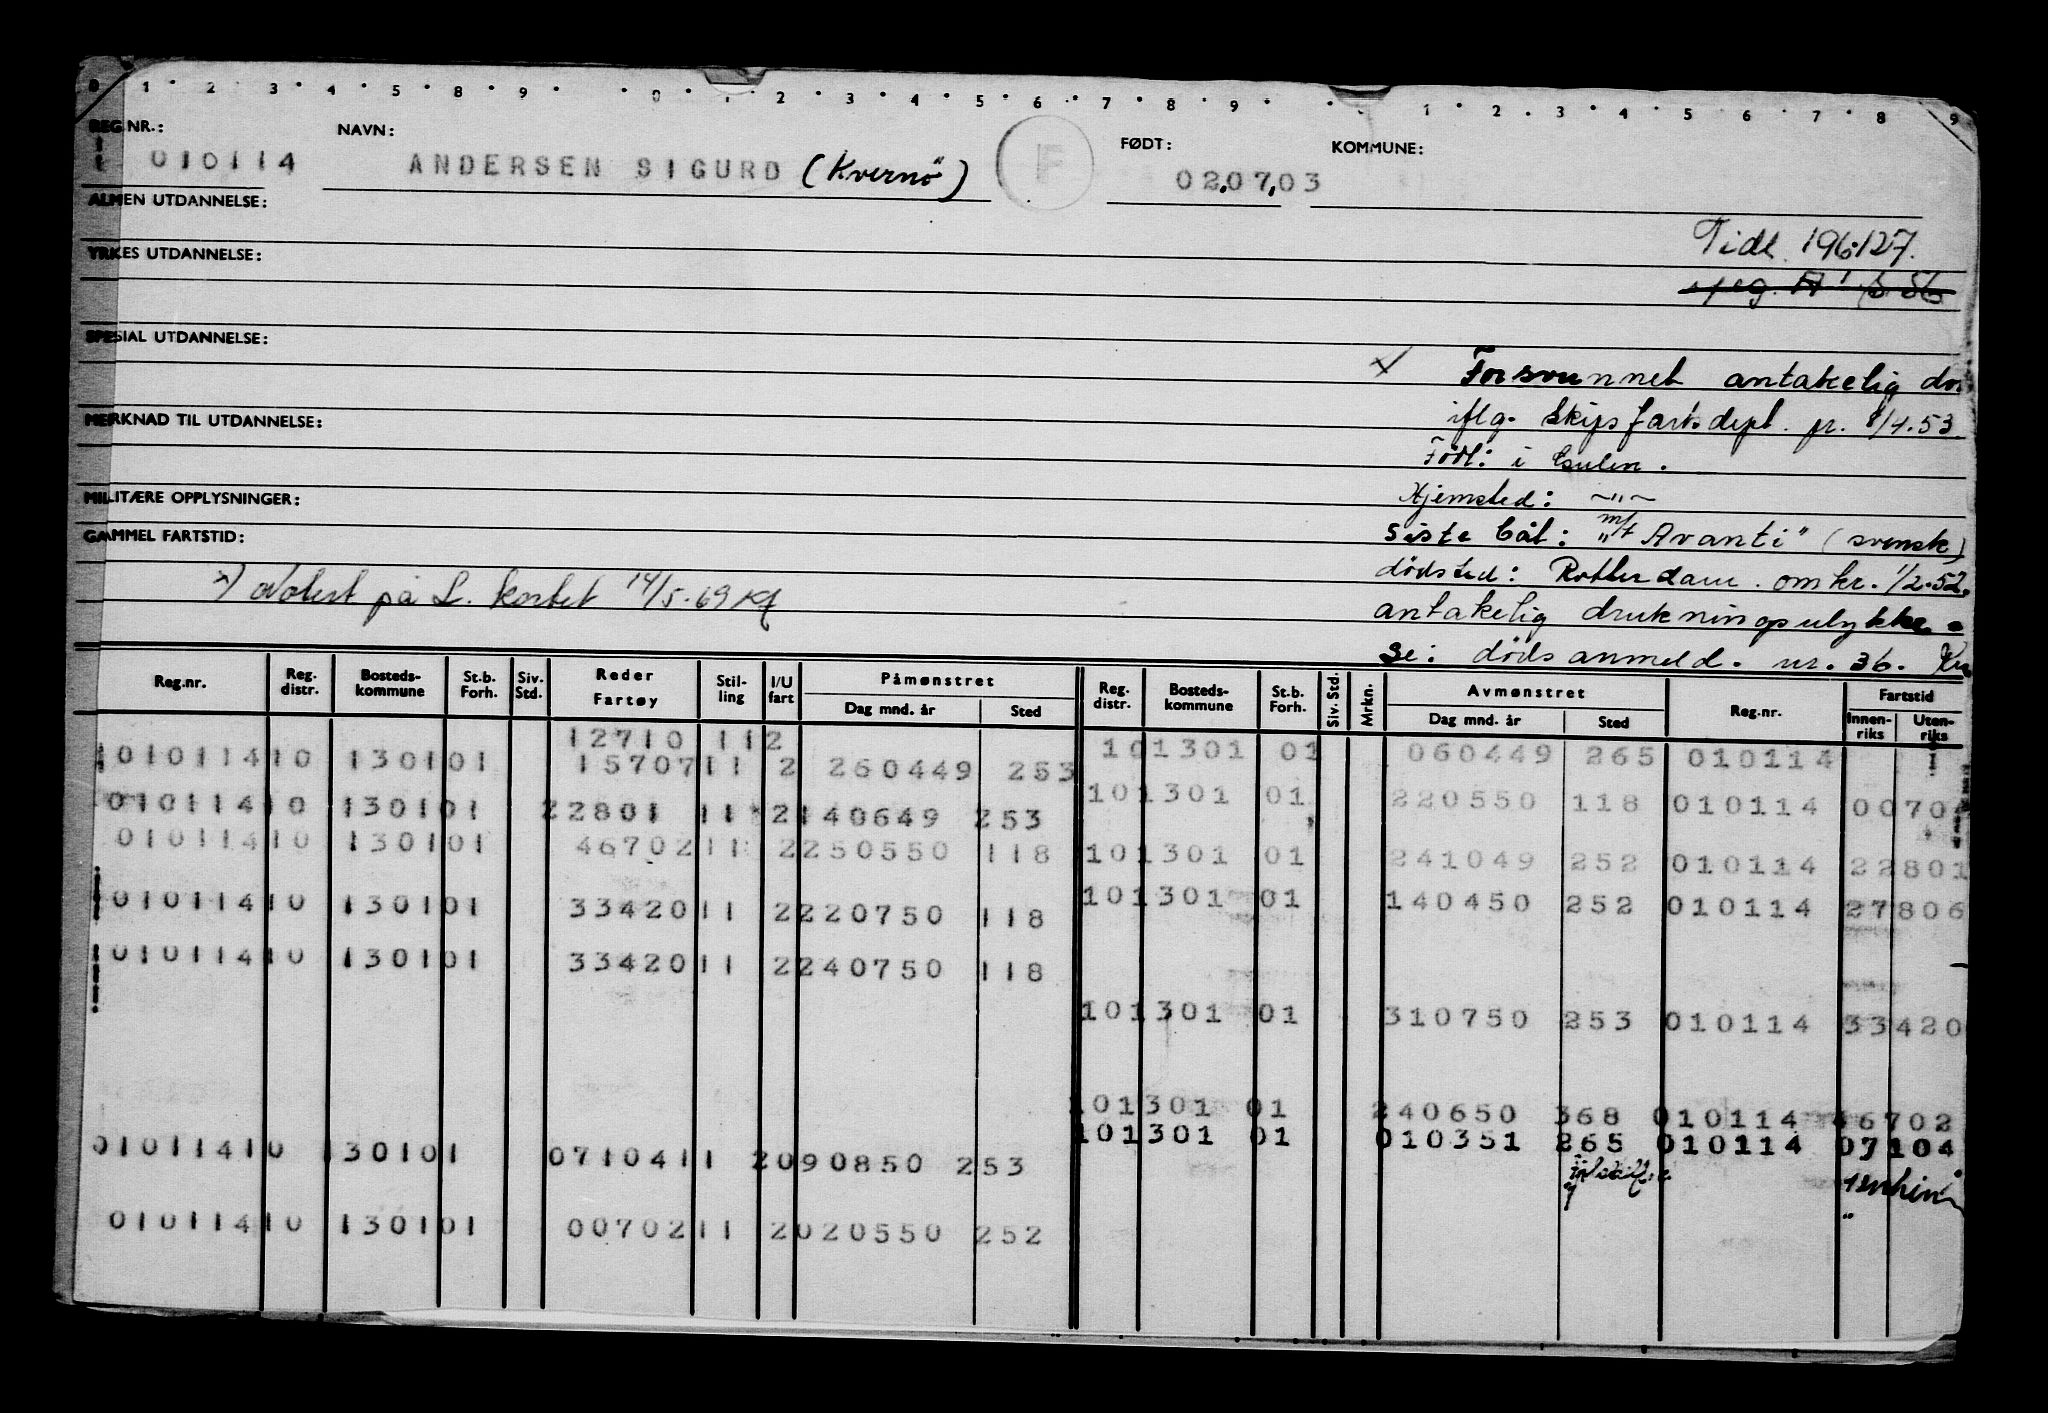 0 1 2 3 4 5 8 9 0 1 2 3 4 5 6 7 8 9 1 2 3 4 5 6 7 8 9
REG.NR.: NAVN: FØDT: KOMMUNE:
010114 ANDERSEN SIGURD (Kvernö) F 02.07.03
ALMEN UTDANNELSE:
Tidl. 196127.
YRKES UTDANNELSE:
SPESIAL UTDANNELSE:
Forsvunnet antakelig
MERKNAD TIL UTDANNELSE: iflg. Skipsfartsdept. pr. 8/4.53.
Född: i Gulen.
MILITÆRE OPPLYSNINGER: Hjemsted: ~"~
GAMMEL FARTSTID: Siste båt: m/t "Avanti" (svensk)
dödsted: Rotterdam. omkr. 1/2.52.
x) Notert på L. kortet 14/5.69 antakelig drukningsulykke.
Se: dödsanmeld. nr. 36.
Reg.nr. Reg. distr. Bosteds-kommune St.b. Forh. Siv. Std. Reder Fartøy Stil-ling I/U fart Påmønstret Reg. distr. Bosteds-kommune St.b. Forh. Siv. Std. Mrkn. Avmønstret Reg.nr. Fartstid
Dag mnd. år Sted Dag mnd. år Sted Innen-riks Uten-riks
12710 112 101301 01 060449 265 010114
010114 10 1301 01 15707 11 2 260449 253
101301 01 220550 118 010114 00702
010114 10 1301 01 22801 11 2 140649 253
010114 10 1301 01 46702 11 2 250550 118 101301 01 241049 252 010114 22801
010114 10 1301 01 33420 11 2 220750 118 101301 01 140450 252 010114 27806
010114 10 1301 01 33420 11 2 240750 118
101301 01 310750 253 010114 33420
101301 01 240650 368 010114 46702
101301 01 010351 265 010114 07104
010114 10 1301 01 07104 11 2 090850 253
010114 10 1301 01 00702 11 2 020550 252